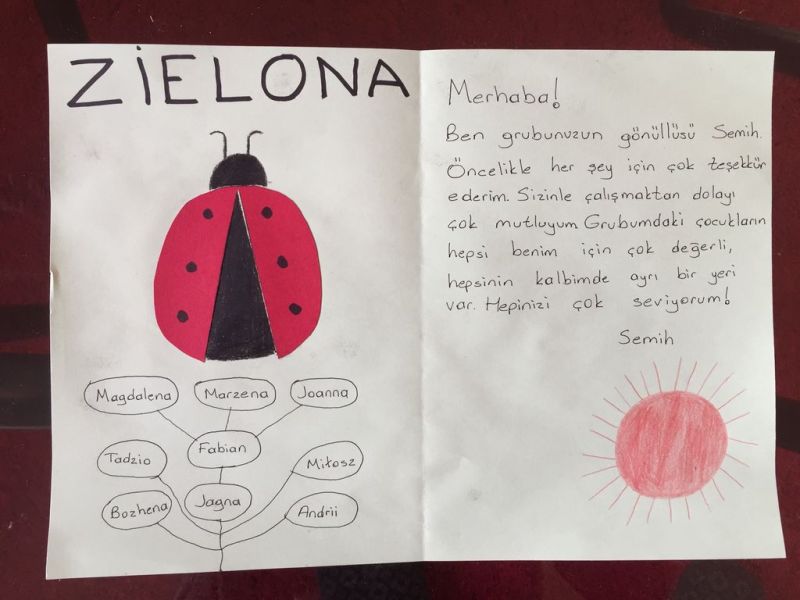 ZIELONA
Magdalena
Marzena
Joanna
Fabian
Tadzio
Miłosz
Bozhena
Jagna
Andrii
Merhaba!
Ben grubunuzun gönüllüsü Semih.
Öncelikle her şey için çok teşekkür
ederim. Sizinle çalışmaktan dolayı
çok mutluyum Grubumdaki çocukların
hepsi benim için çok değerli,
hepsinin kalbimde ayrı bir yeri
var. Hepinizi çok seviyorum!
Semih